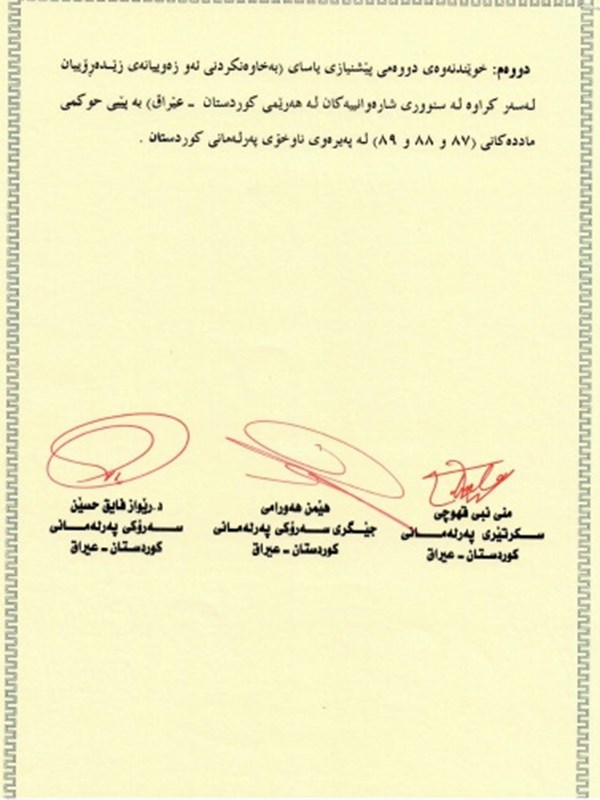 دووەم: خوێندنەوەی دووەمی پێشنیازی یاسای (بەخاوەنکردنی ئەو زەوییانەی زێدەڕۆییان
لەسەر کراوە لە سنووری شارەوانییەکان لە هەرێمی کوردستان - عێراق) بە پێی حوکمی
ماددەکانی (٨٧ و ٨٨ و ٨٩) لە پەیڕەوی ناوخۆی پەرلەمانی کوردستان .
منى نبي قهوچی
سکرتێری پەرلەمانی
کوردستان - عیراق
هێمن هەورامی
جێگری سەرۆکی پەرلەمانی
کوردستان - عیراق
د.رێواز فایق حسێن
سەرۆکی پەرلەمانی
کوردستان - عیراق